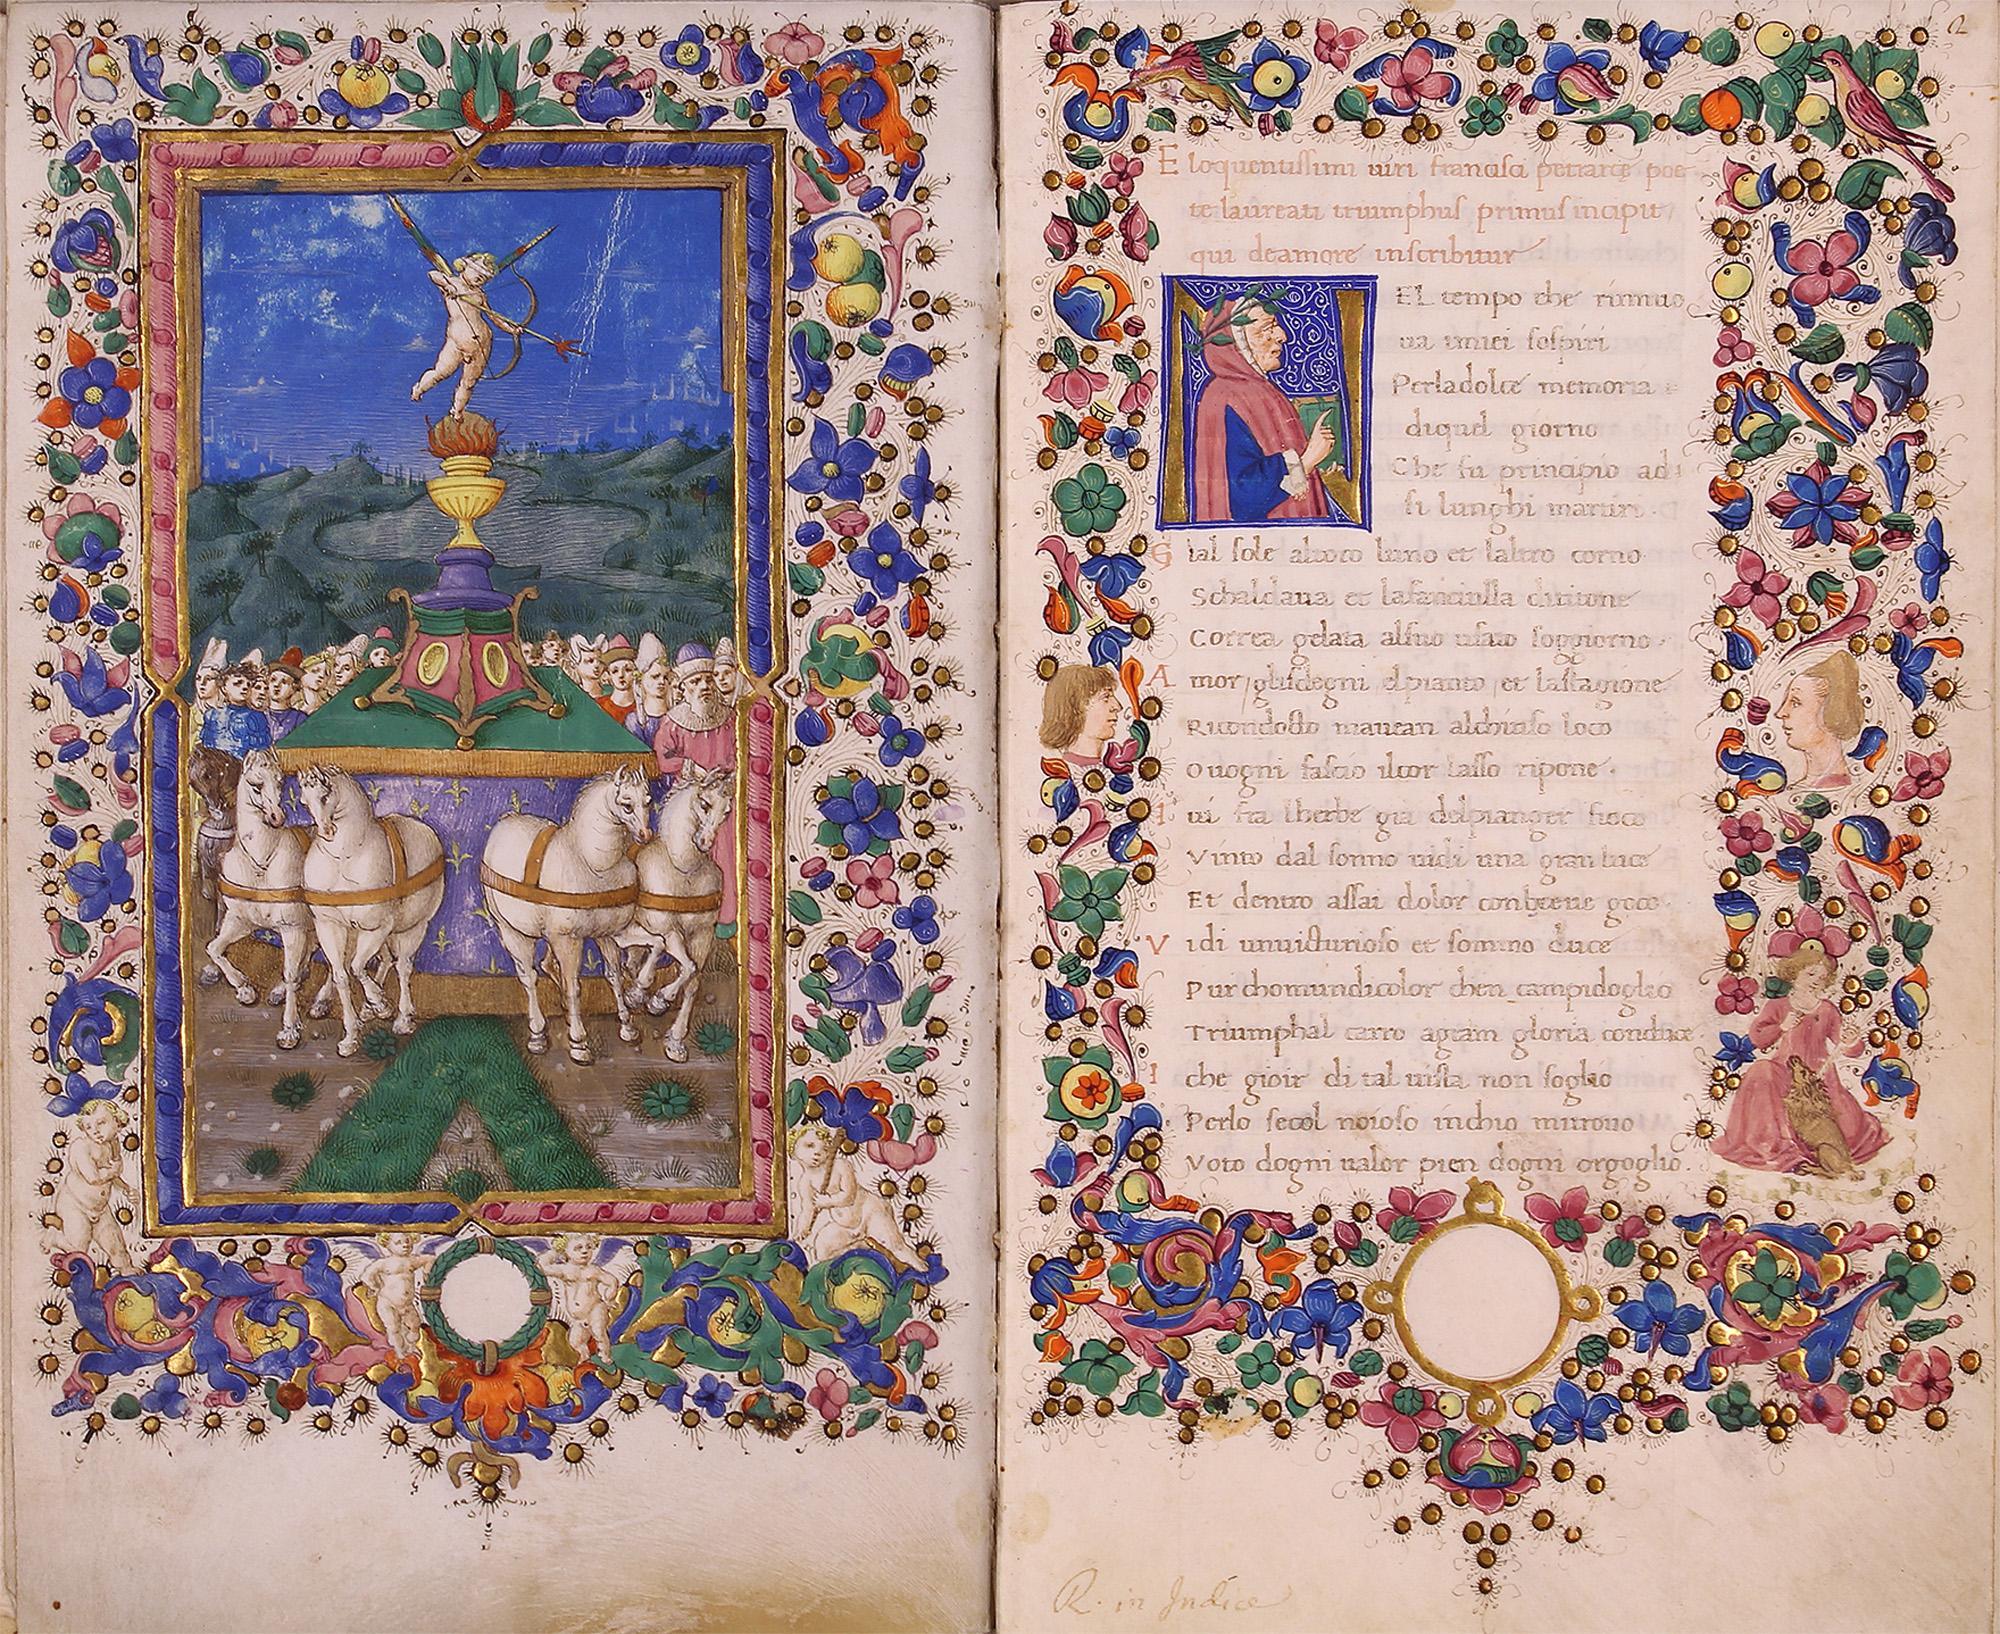 2
Eloquentissimi uiri francisci petrarce poe-
te laureati triumphus primus incipit
qui deamore inscribitur
NEL tempo che rinnuo
ua imiei sospiri
Perladolce memoria
diquel giorno
Che fu principio ad
si lunghi martiri
Gial sole altoro luno et laltro corno
Schaldaua et lafanciulla dititone
Correa gelata alsuo usato soggiorno
Amor glisdegni elpianto et lastagione
Ricondocto mauean alchiuso loco
Ouogni fascio ilcor lasso ripone
Iui fra lherbe gia delpianger fioco
Vinto dal sonno uidi una gran luce
Et dentro assai dolor conbreue gioco
Vidi unuicturioso et sommo duce
Pur chomundicolor chen campidoglio
Triumphal carro agram gloria conduce
I che gioir di tal uista non soglio
Perlo secol noioso inchio mitrouo
Voto dogni ualor pien dogni orgoglio
R. in Indice